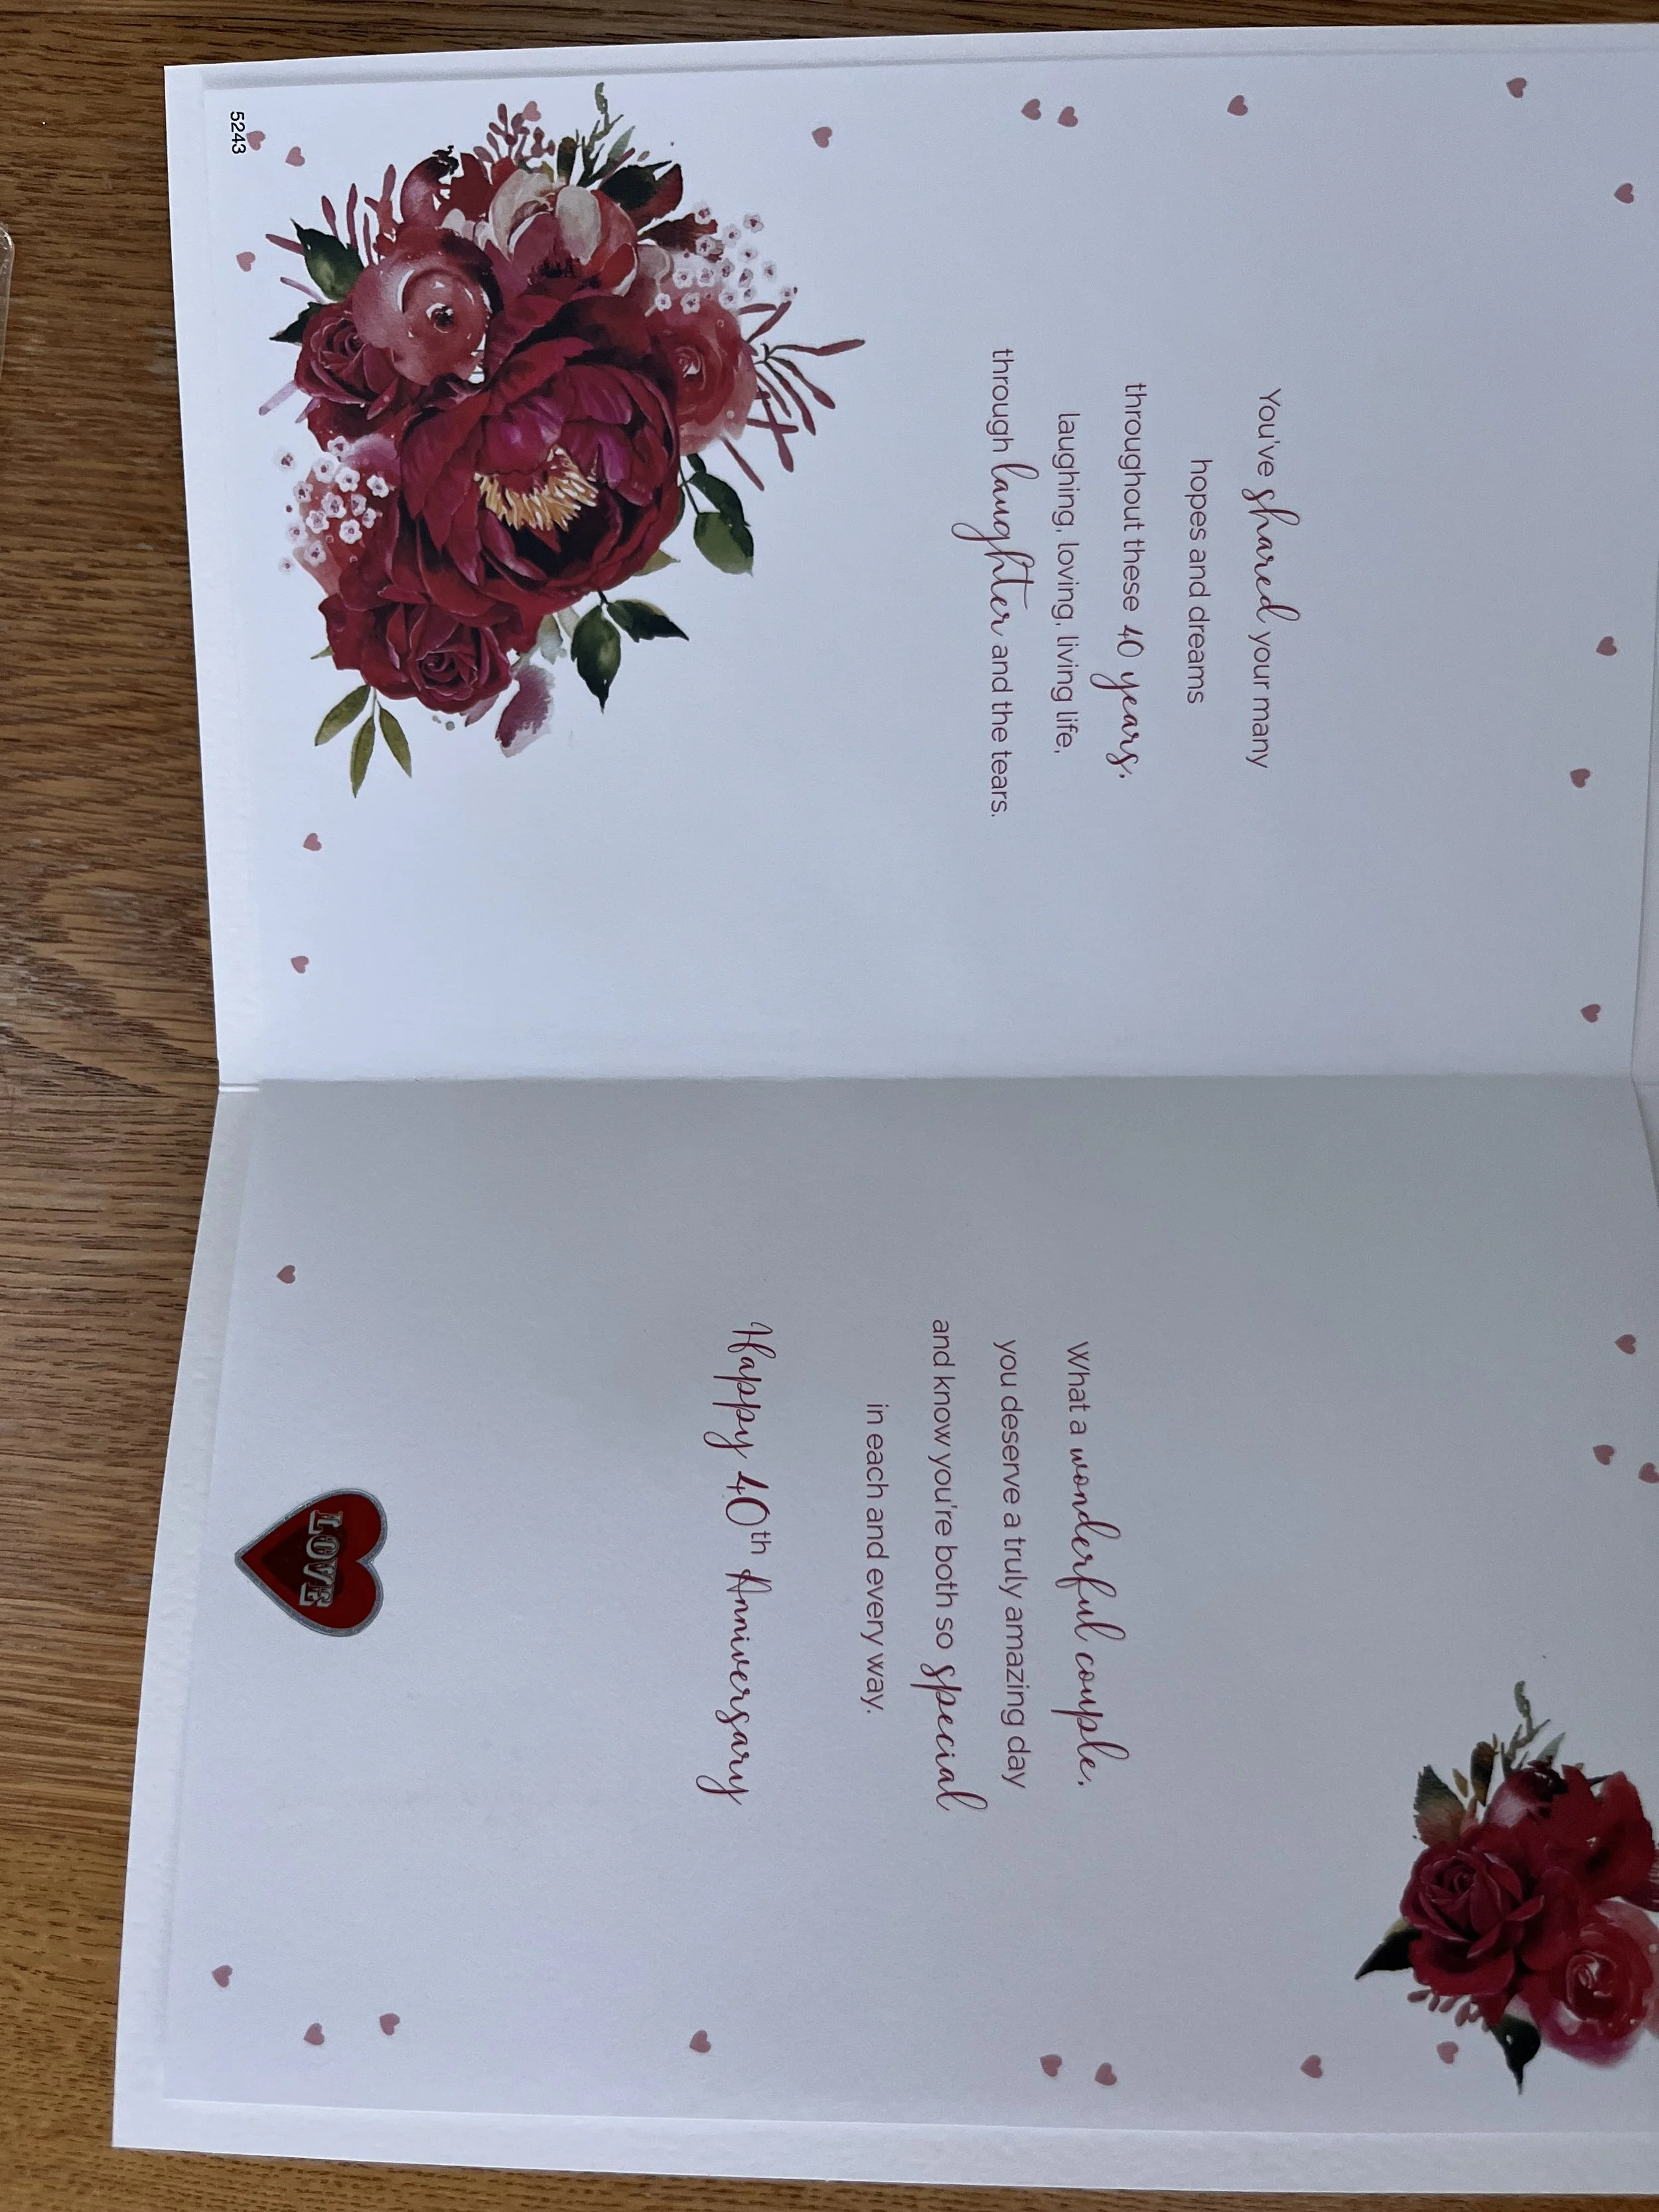 You've shared your many
hopes and dreams
throughout these 40 years,
laughing, loving, living life,
through laughter and the tears.
5243
What a wonderful couple,
you deserve a truly amazing day
and know you're both so special
in each and every way.
Happy 40th Anniversary
LOVE